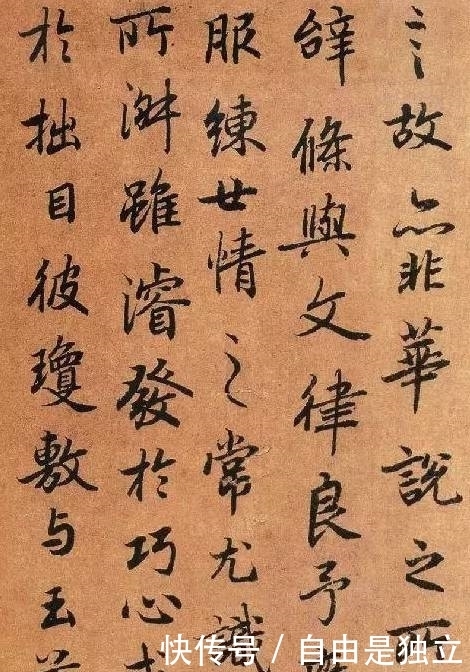 言故亦非華說之所
辭條與文律良予
服練世情之常尤識
所淑雖濬發於巧心
於拙目彼瓊敷与玉
快传号 / 自由是独立